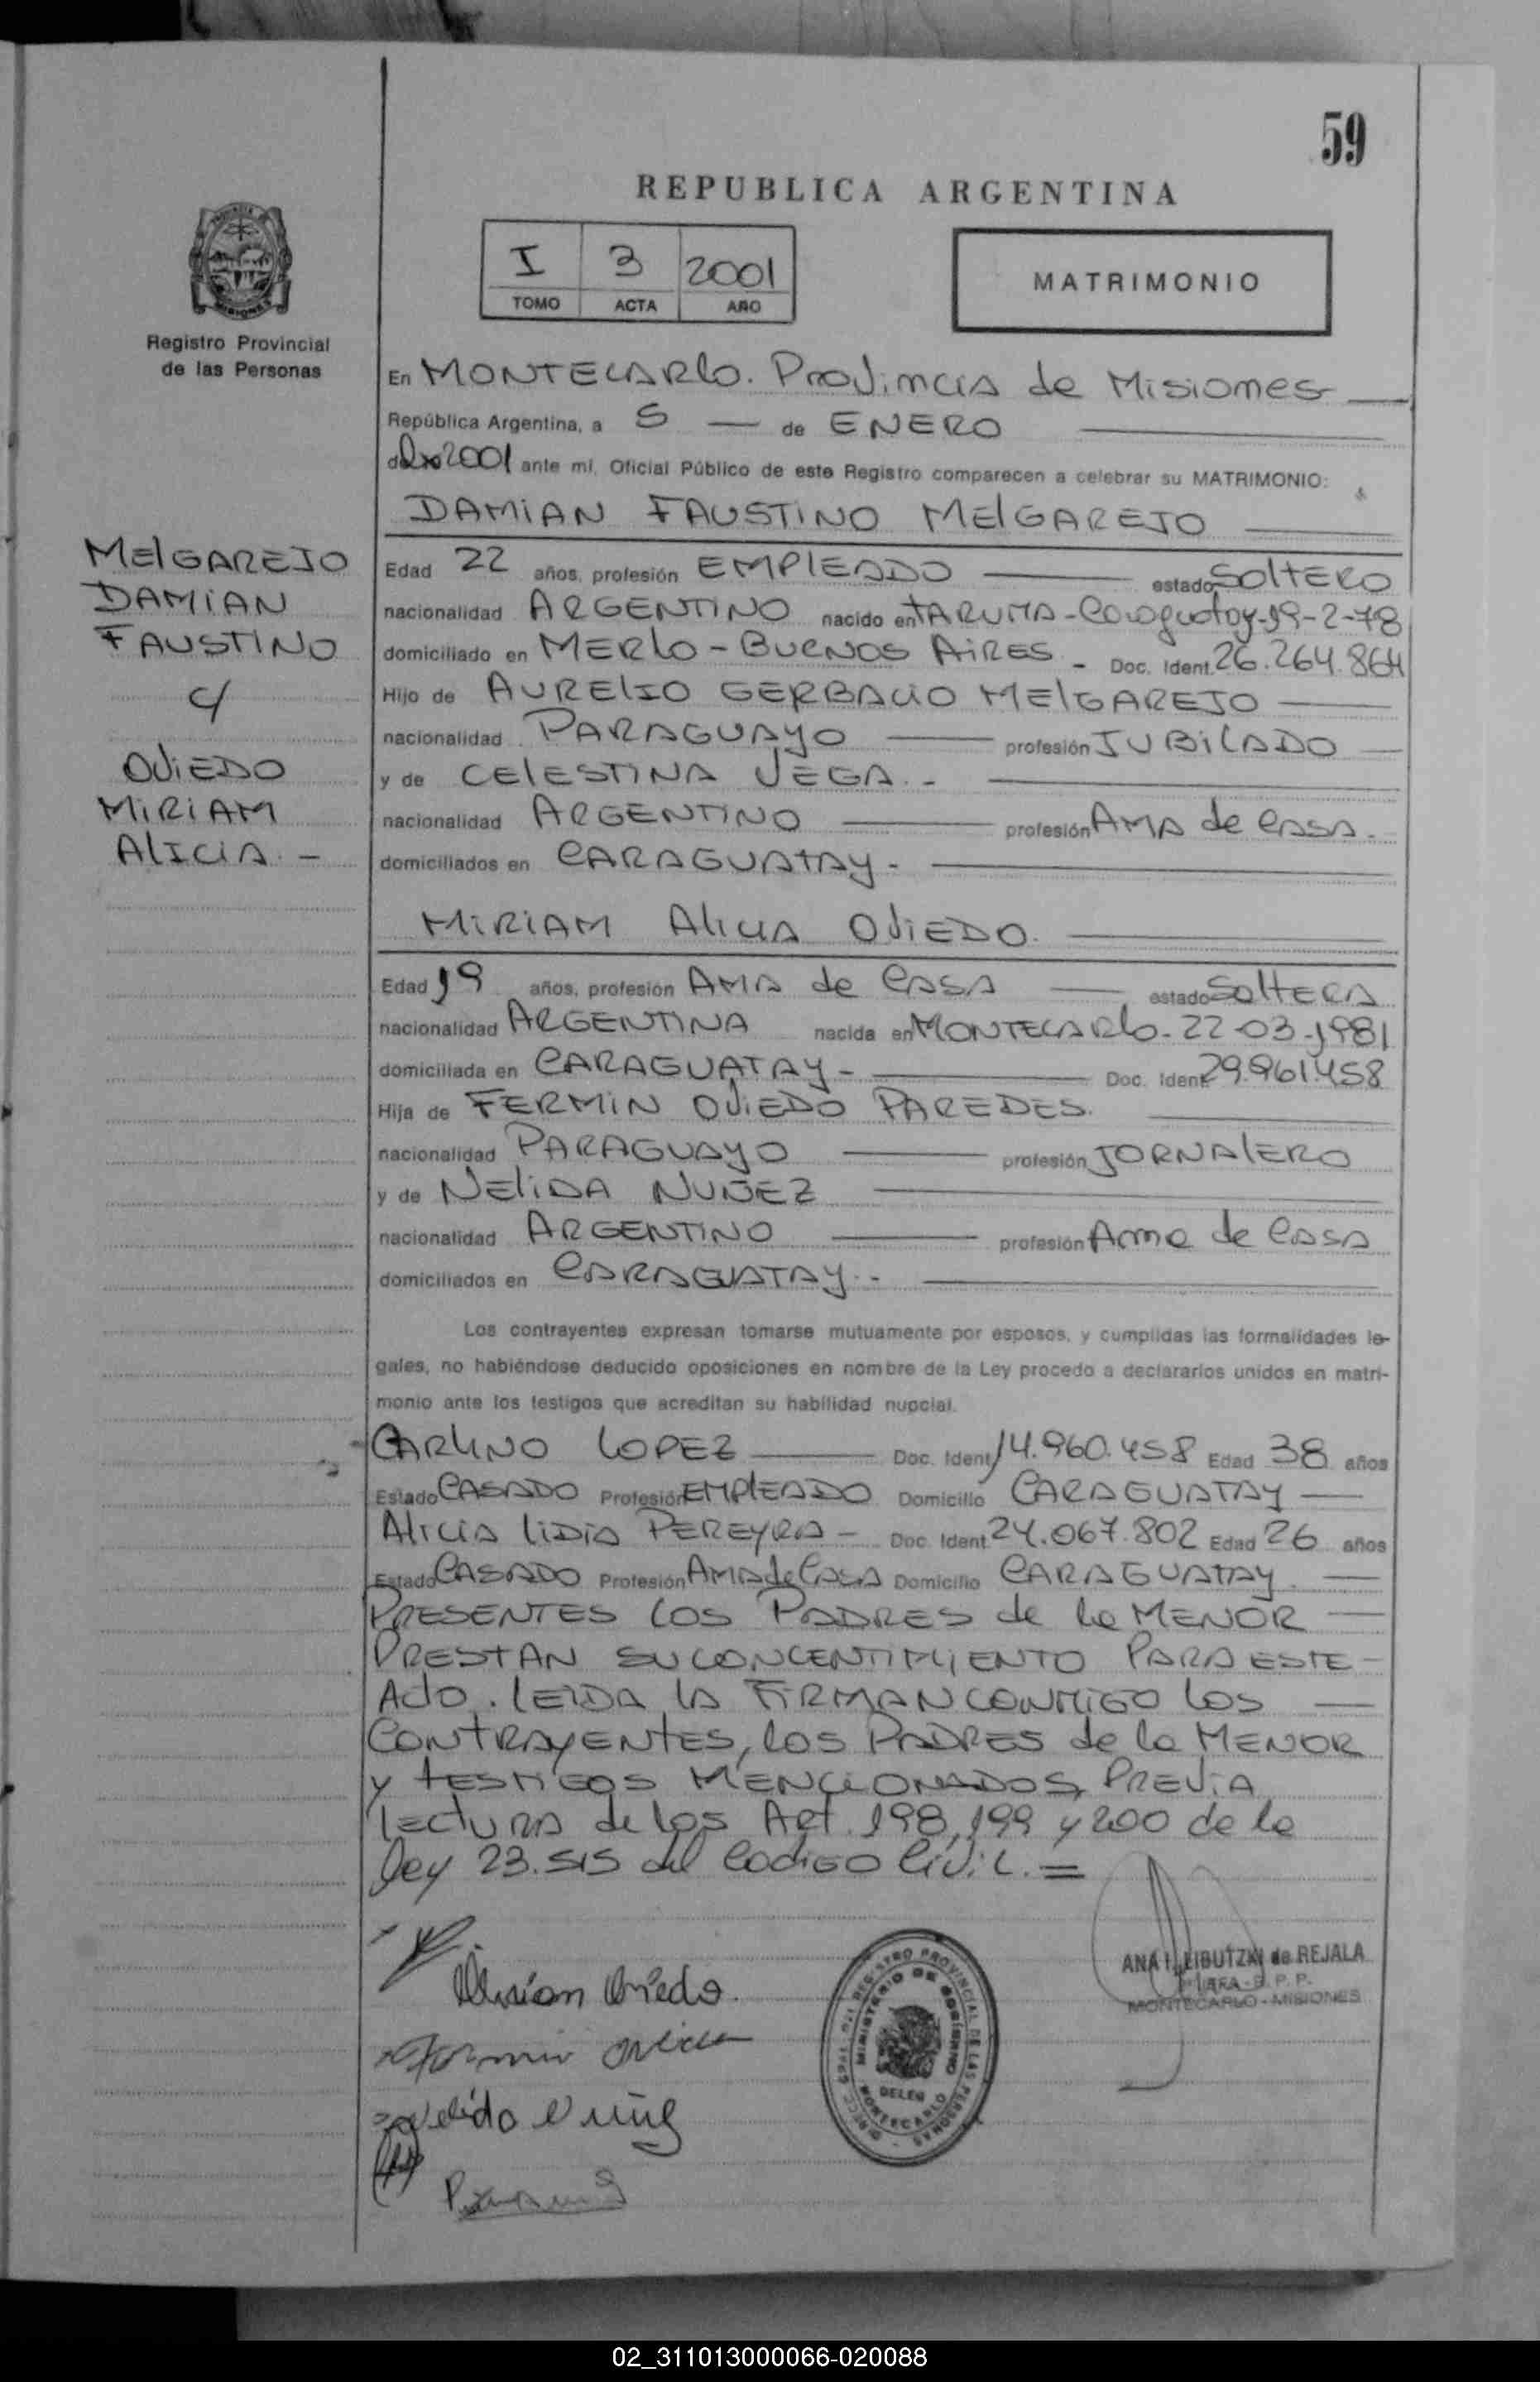 59
REPUBLICA ARGENTINA
I 3 2001
TOMO ACTA AÑO
MATRIMONIO
Registro Provincial
de las Personas
En MONTECARLO. PROVINCIA de MISIONES
República Argentina, a 5 de ENERO
de 2001 ante mí, Oficial Público de este Registro comparecen a celebrar su MATRIMONIO:
DAMIAN FAUSTINO MELGAREJO
MELGAREJO
DAMIAN
FAUSTINO
c/
OVIEDO
MIRIAM
ALICIA. -
Edad 22 años, profesión EMPLEADO estado SOLTERO
nacionalidad ARGENTINO nacido en TARUMA - Caraguatay - 19-2-78
domiciliado en MERLO - BUENOS AIRES - Doc. Ident. 26.264.864
Hijo de AURELIO GERBACIO MELGAREJO
nacionalidad PARAGUAYO profesión JUBILADO
y de CELESTINA VEGA. -
nacionalidad ARGENTINO profesión AMA de CASA.
domiciliados en CARAGUATAY -
MIRIAM ALICIA OVIEDO.
Edad 19 años, profesión AMA de CASA estado SOLTERA
nacionalidad ARGENTINA nacida en MONTECARLO - 22-03-1981
domiciliada en CARAGUATAY - Doc. Ident. 29.961.458
Hija de FERMIN OVIEDO PAREDES.
nacionalidad PARAGUAYO profesión JORNALERO
y de NELIDA NUÑEZ
nacionalidad ARGENTINO profesión Ama de CASA
domiciliados en CARAGUATAY. -
Los contrayentes expresan tomarse mutuamente por esposos, y cumplidas las formalidades le-
gales, no habiéndose deducido oposiciones en nombre de la Ley procedo a declararlos unidos en matri-
monio ante los testigos que acreditan su habilidad nupcial.
CARLINO LOPEZ Doc. Ident. 14.960.458 Edad 38 años
Estado CASADO Profesión EMPLEADO Domicilio CARAGUATAY
ALICIA LIDIA PEREYRA - Doc. Ident. 24.067.802 Edad 26 años
Estado CASADO Profesión AMA de CASA Domicilio CARAGUATAY.
PRESENTES LOS PADRES de la MENOR
PRESTAN SU CONCENTIMIENTO PARA ESTE
ACTO. LEIDA LA FIRMAN CONMIGO LOS
CONTRAYENTES, LOS PADRES de la MENOR
y TESTIGOS MENCIONADOS, PREVIA
LECTURA de los Art. 198, 199 y 200 de la
Ley 23.515 del CODIGO CIVIL. =
Miriam Oviedo.
Fermin Oviedo
Nelida Nuñez
REGISTRO PROVINCIAL DE LAS PERSONAS
MINISTERIO DE GOBIERNO
DELEG
MONTECARLO
ANA I. LIBUTZKI de REJALA
MONTECARLO - MISIONES
02_311013000066-020088